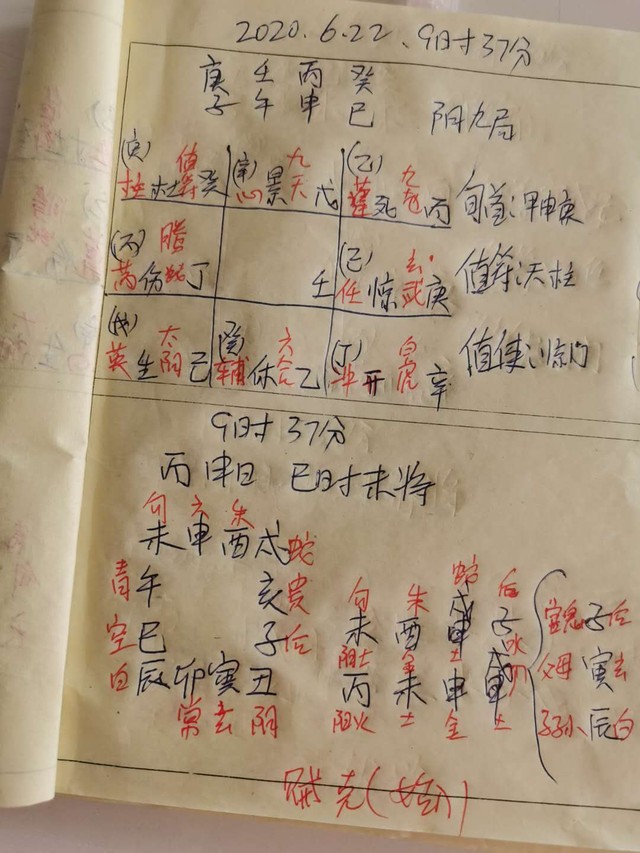 2020.6.22、9时37分
庚 壬 丙 癸
子 午 申 巳 阳九局
(庚) 值符 (辛) 九天 (乙) 九地
柱 杜 癸 心 景 戊 蓬 死 丙 旬首:甲申庚
(丙) 腾蛇 (己) 玄武
芮 伤 丁 壬 任 惊 庚 值符:天柱
(戊) 太阴 (癸) 六合 (丁) 白虎
英 生 己 辅 休 乙 开 辛 值使:惊门
9时37分
丙申日 巳时未将
勾 六 朱
未 申 酉 戌 蛇
青 午 亥 贵
空 巳 子 后
白 辰 卯 寅 丑
常 玄 阴
勾 朱 蛇 后
未 酉 戌 子
阳土 金 土 水
丙 未 申 戌
阳火 土 金 土
官鬼 子 后
父母 寅 玄
子孙 辰 白
克